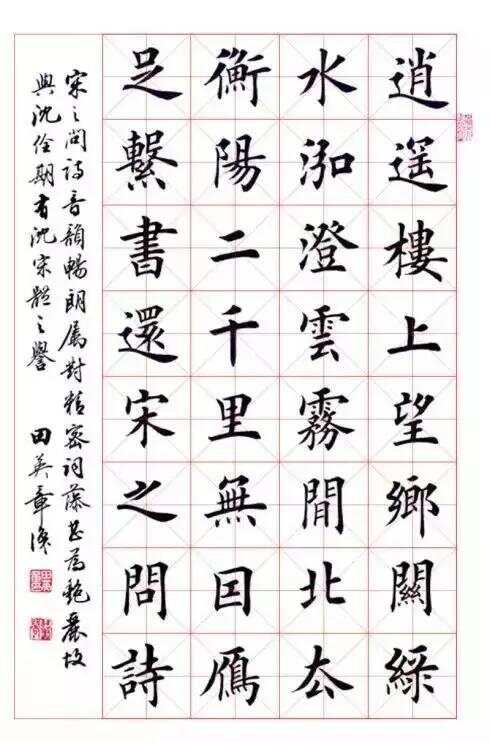 逍遥樓上望鄉關綠
水泓澄雲霧閒北厺
衡陽二千里無囙鴈
足繫書還宋之問詩
宋之問詩音韻暢朗屬對精密詞藻甚為艷麗故
與沈佺期有沈宋體之譽 田英章